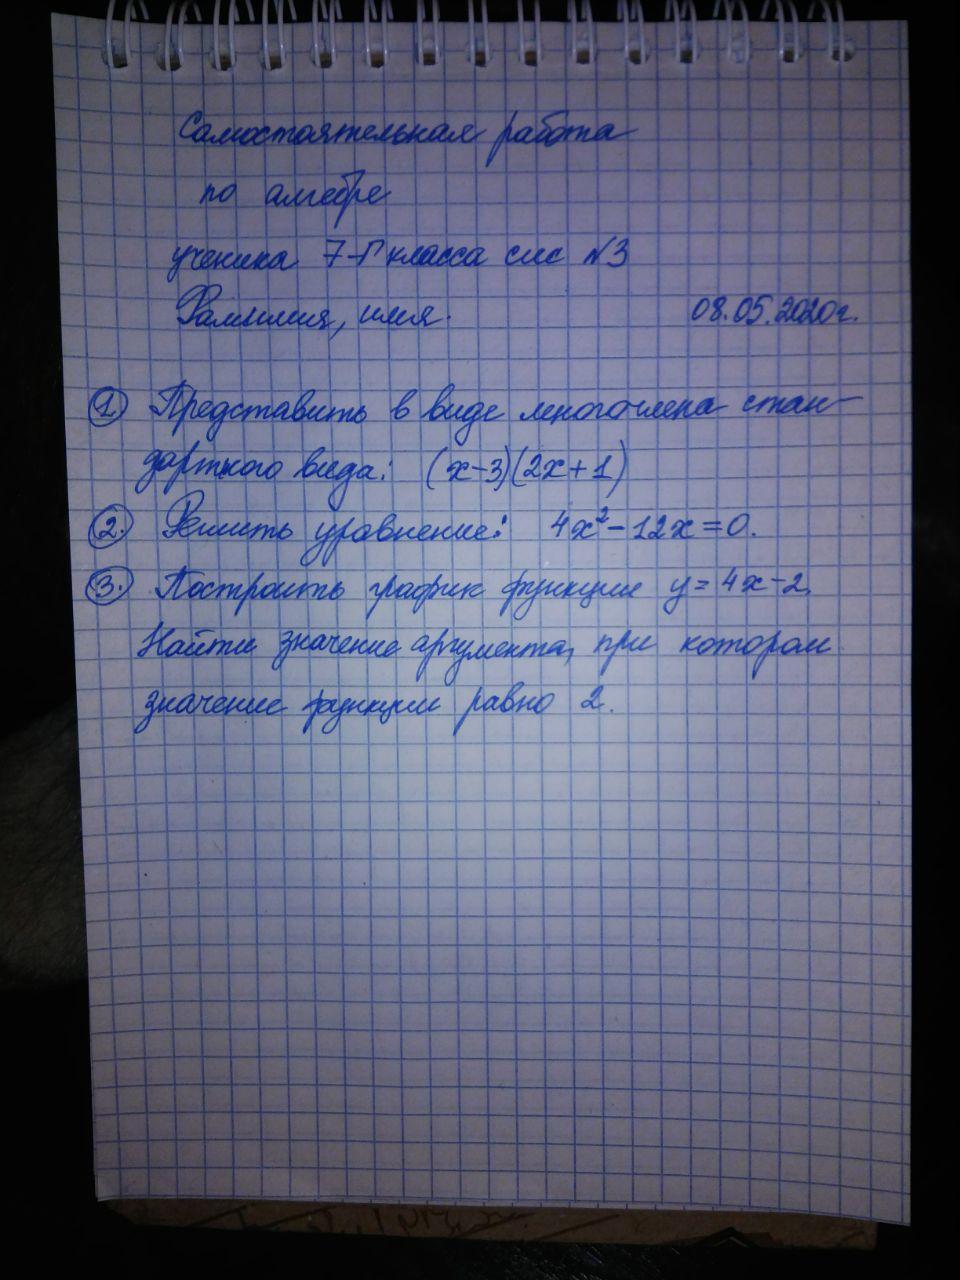 Самостоятельная работа
по алгебре
ученика 7-Г класса СШ №3
Фамилия, имя. 08.05.2020г.
① Представить в виде многочлена стан-
дартного вида: (x-3)(2x+1)
②. Решить уравнение: 4x²-12x=0.
③. Построить график функции y=4x-2.
Найти значение аргумента, при котором
значение функции равно 2.